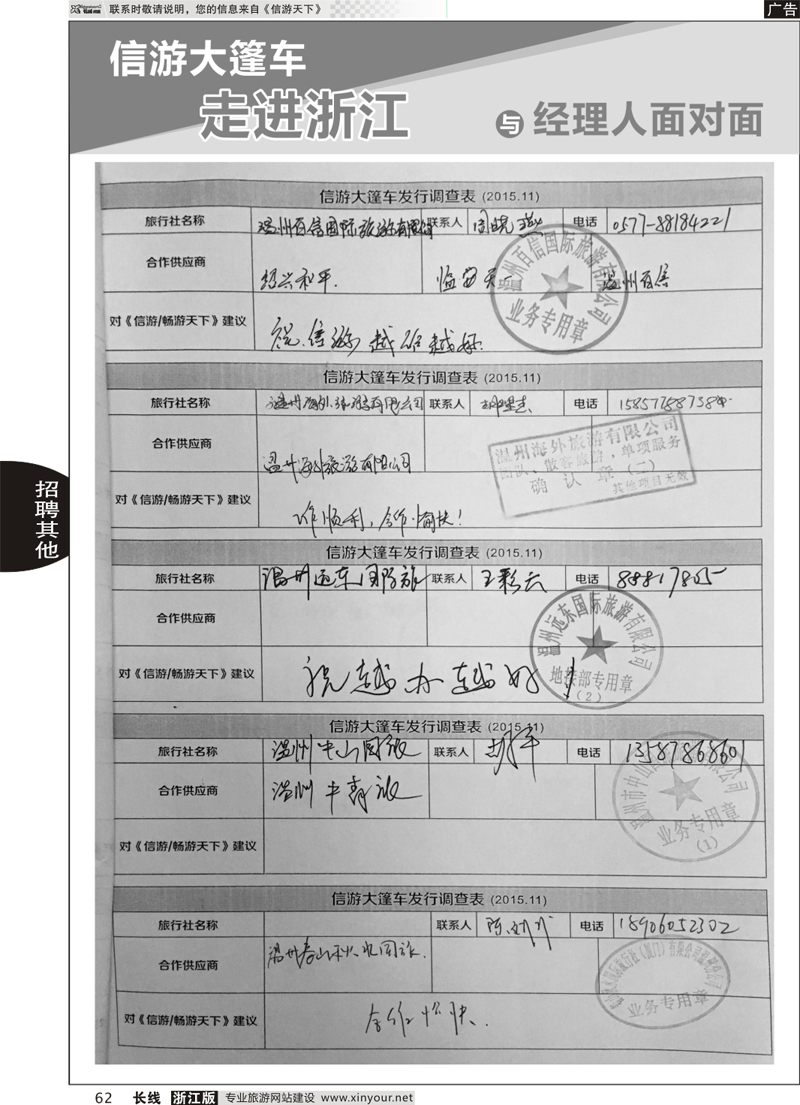 联系时敬请说明，您的信息来自《信游天下》
广告
信游大篷车
走进浙江 与 经理人面对面
招聘其他
信游大篷车发行调查表 (2015.11)
旅行社名称 温州百信国际旅游有限公司 联系人 电话 0577-88184221
合作供应商 绍兴和平. 温州百信
温州百信国际旅游有限公司
业务专用章
对《信游/畅游天下》建议 祝信游越办越好.
信游大篷车发行调查表 (2015.11)
旅行社名称 温州海外旅游有限公司 联系人 电话
合作供应商 温州海外旅游有限公司
温州海外旅游有限公司
团队、散客旅游、单项服务
确认章(二)
其他项目无效
对《信游/畅游天下》建议 顺利，合作愉快！
信游大篷车发行调查表 (2015.11)
旅行社名称 温州远东国际旅 联系人 王彩云 电话 88817805
合作供应商
温州远东国际旅游有限公司
地接部专用章
(2)
对《信游/畅游天下》建议 祝越办越好！
信游大篷车发行调查表 (2015.11)
旅行社名称 温州中山国旅 联系人 电话 13587868601
合作供应商 温州中青旅
温州市中山 有限公司
业务专用章
(1)
对《信游/畅游天下》建议
信游大篷车发行调查表 (2015.11)
旅行社名称 联系人 陈 电话 18906052302
合作供应商 温州 国旅.
业务专用章
对《信游/畅游天下》建议 合作愉快.
62 长线 浙江版 专业旅游网站建设 www.xinyour.net